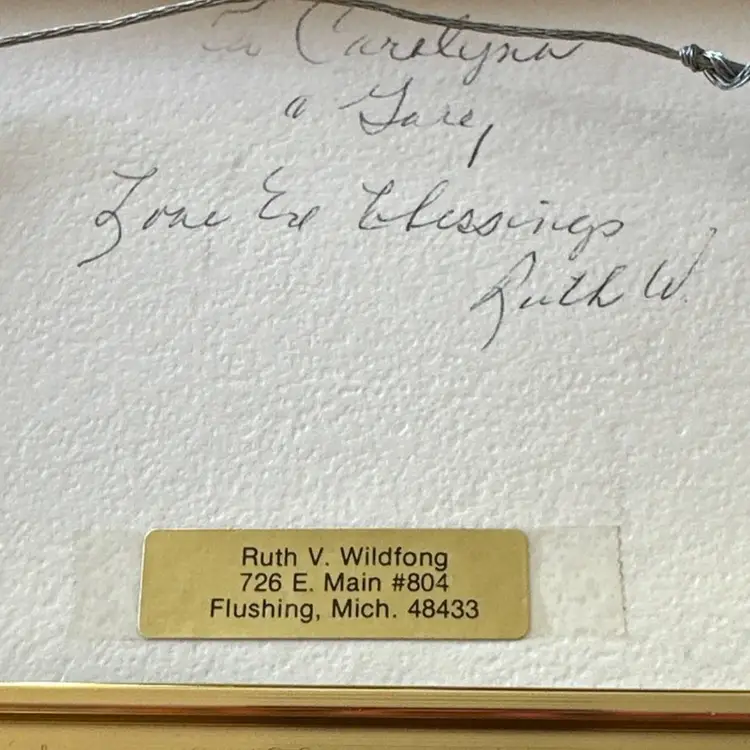 To Carolyn
& Gary,
Love & blessings
Ruth W.
Ruth V. Wildfong
726 E. Main #804
Flushing, Mich. 48433